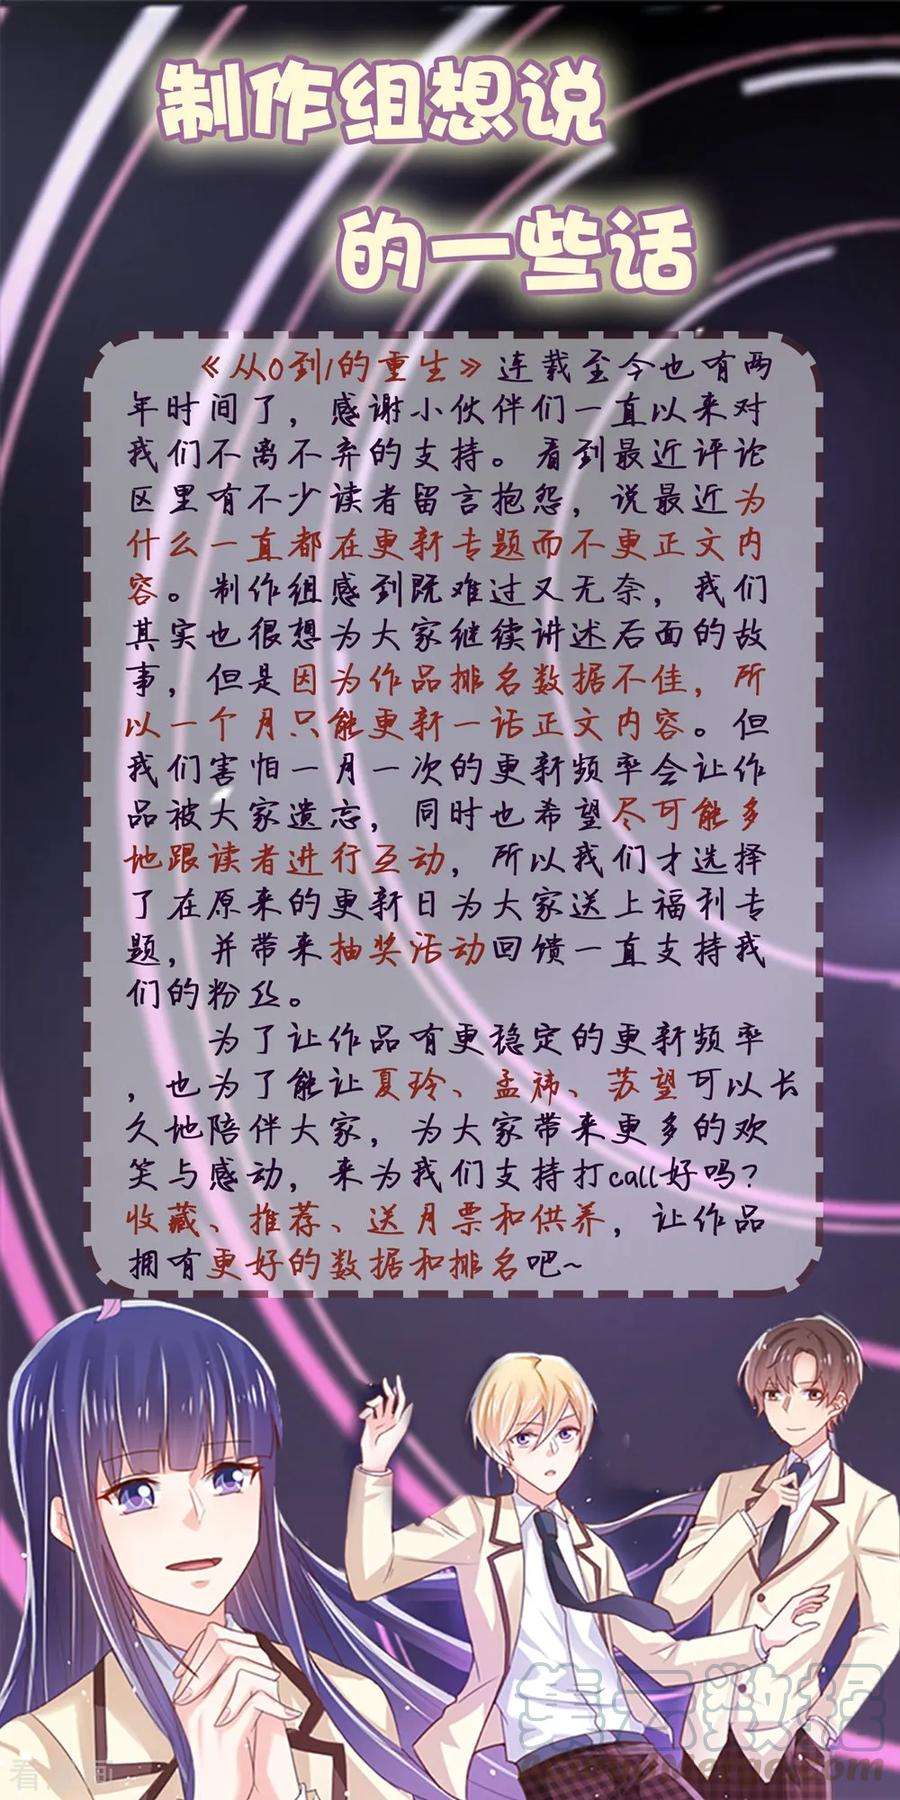 制作组想说
的一些话
《从0到1的重生》连载至今也有两
年时间了，感谢小伙伴们一直以来对
我们不离不弃的支持。看到最近评论
区里有不少读者留言抱怨，说最近为
什么一直都在更新专题而不更正文内
容。制作组感到既难过又无奈，我们
其实也很想为大家继续讲述后面的故
事，但是因为作品排名数据不佳，所
以一个月只能更新一话正文内容。但
我们害怕一月一次的更新频率会让作
品被大家遗忘，同时也希望尽可能多
地跟读者进行互动，所以我们才选择
了在原来的更新日为大家送上福利专
题，并带来抽奖活动回馈一直支持我
们的粉丝。
为了让作品有更稳定的更新频率
，也为了能让夏玲、孟祎、苏望可以长
久地陪伴大家，为大家带来更多的欢
笑与感动，来为我们支持打call好吗？
收藏、推荐、送月票和供养，让作品
拥有更好的数据和排名吧~